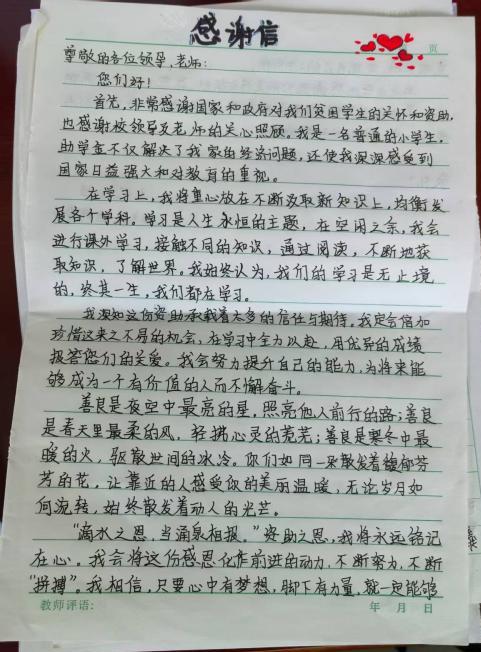 感谢信
页
尊敬的各位领导,老师:
您们好!
首先,非常感谢国家和政府对我们贫困学生的关怀和资助,
也感谢校领导及老师的关心照顾。我是一名普通的小学生,
助学金不仅解决了我家的经济问题,还使我深深感受到
国家日益强大和对教育的重视。
在学习上,我将重心放在不断汲取新知识上,均衡发
展各个学科。学习是人生永恒的主题,在空闲之余,我会
进行课外学习,接触不同的知识,通过阅读,不断地获
取知识,了解世界。我始终认为,我们的学习是无止境
的,终其一生,我们都在学习。
我深知这份资助承载着太多的信任与期待。我定会倍加
珍惜这来之不易的机会,在学习中全力以赴,用优异的成绩
报答您们的关爱。我会努力提升自己的能力,为将来能
够成为一个有价值的人而不懈奋斗。
善良是夜空中最亮的星,照亮他人前行的路;善良
是春天里最柔的风,轻拂心灵的荒芜;善良是寒冬中最
暖的火,驱散世间的冰冷。你们如同一朵散发着馥郁芬
芳的花,让靠近的人感受你的美丽温暖,无论岁月如
何流转,始终散发着动人的光芒。
“滴水之恩,当涌泉相报。”资助之恩,我将永远铭记
在心。我会将这份感恩化作前进的动力,不断努力,不断
“拼搏”。我相信,只要心中有梦想,脚下有力量,就一定能够
教师评语: 年 月 日